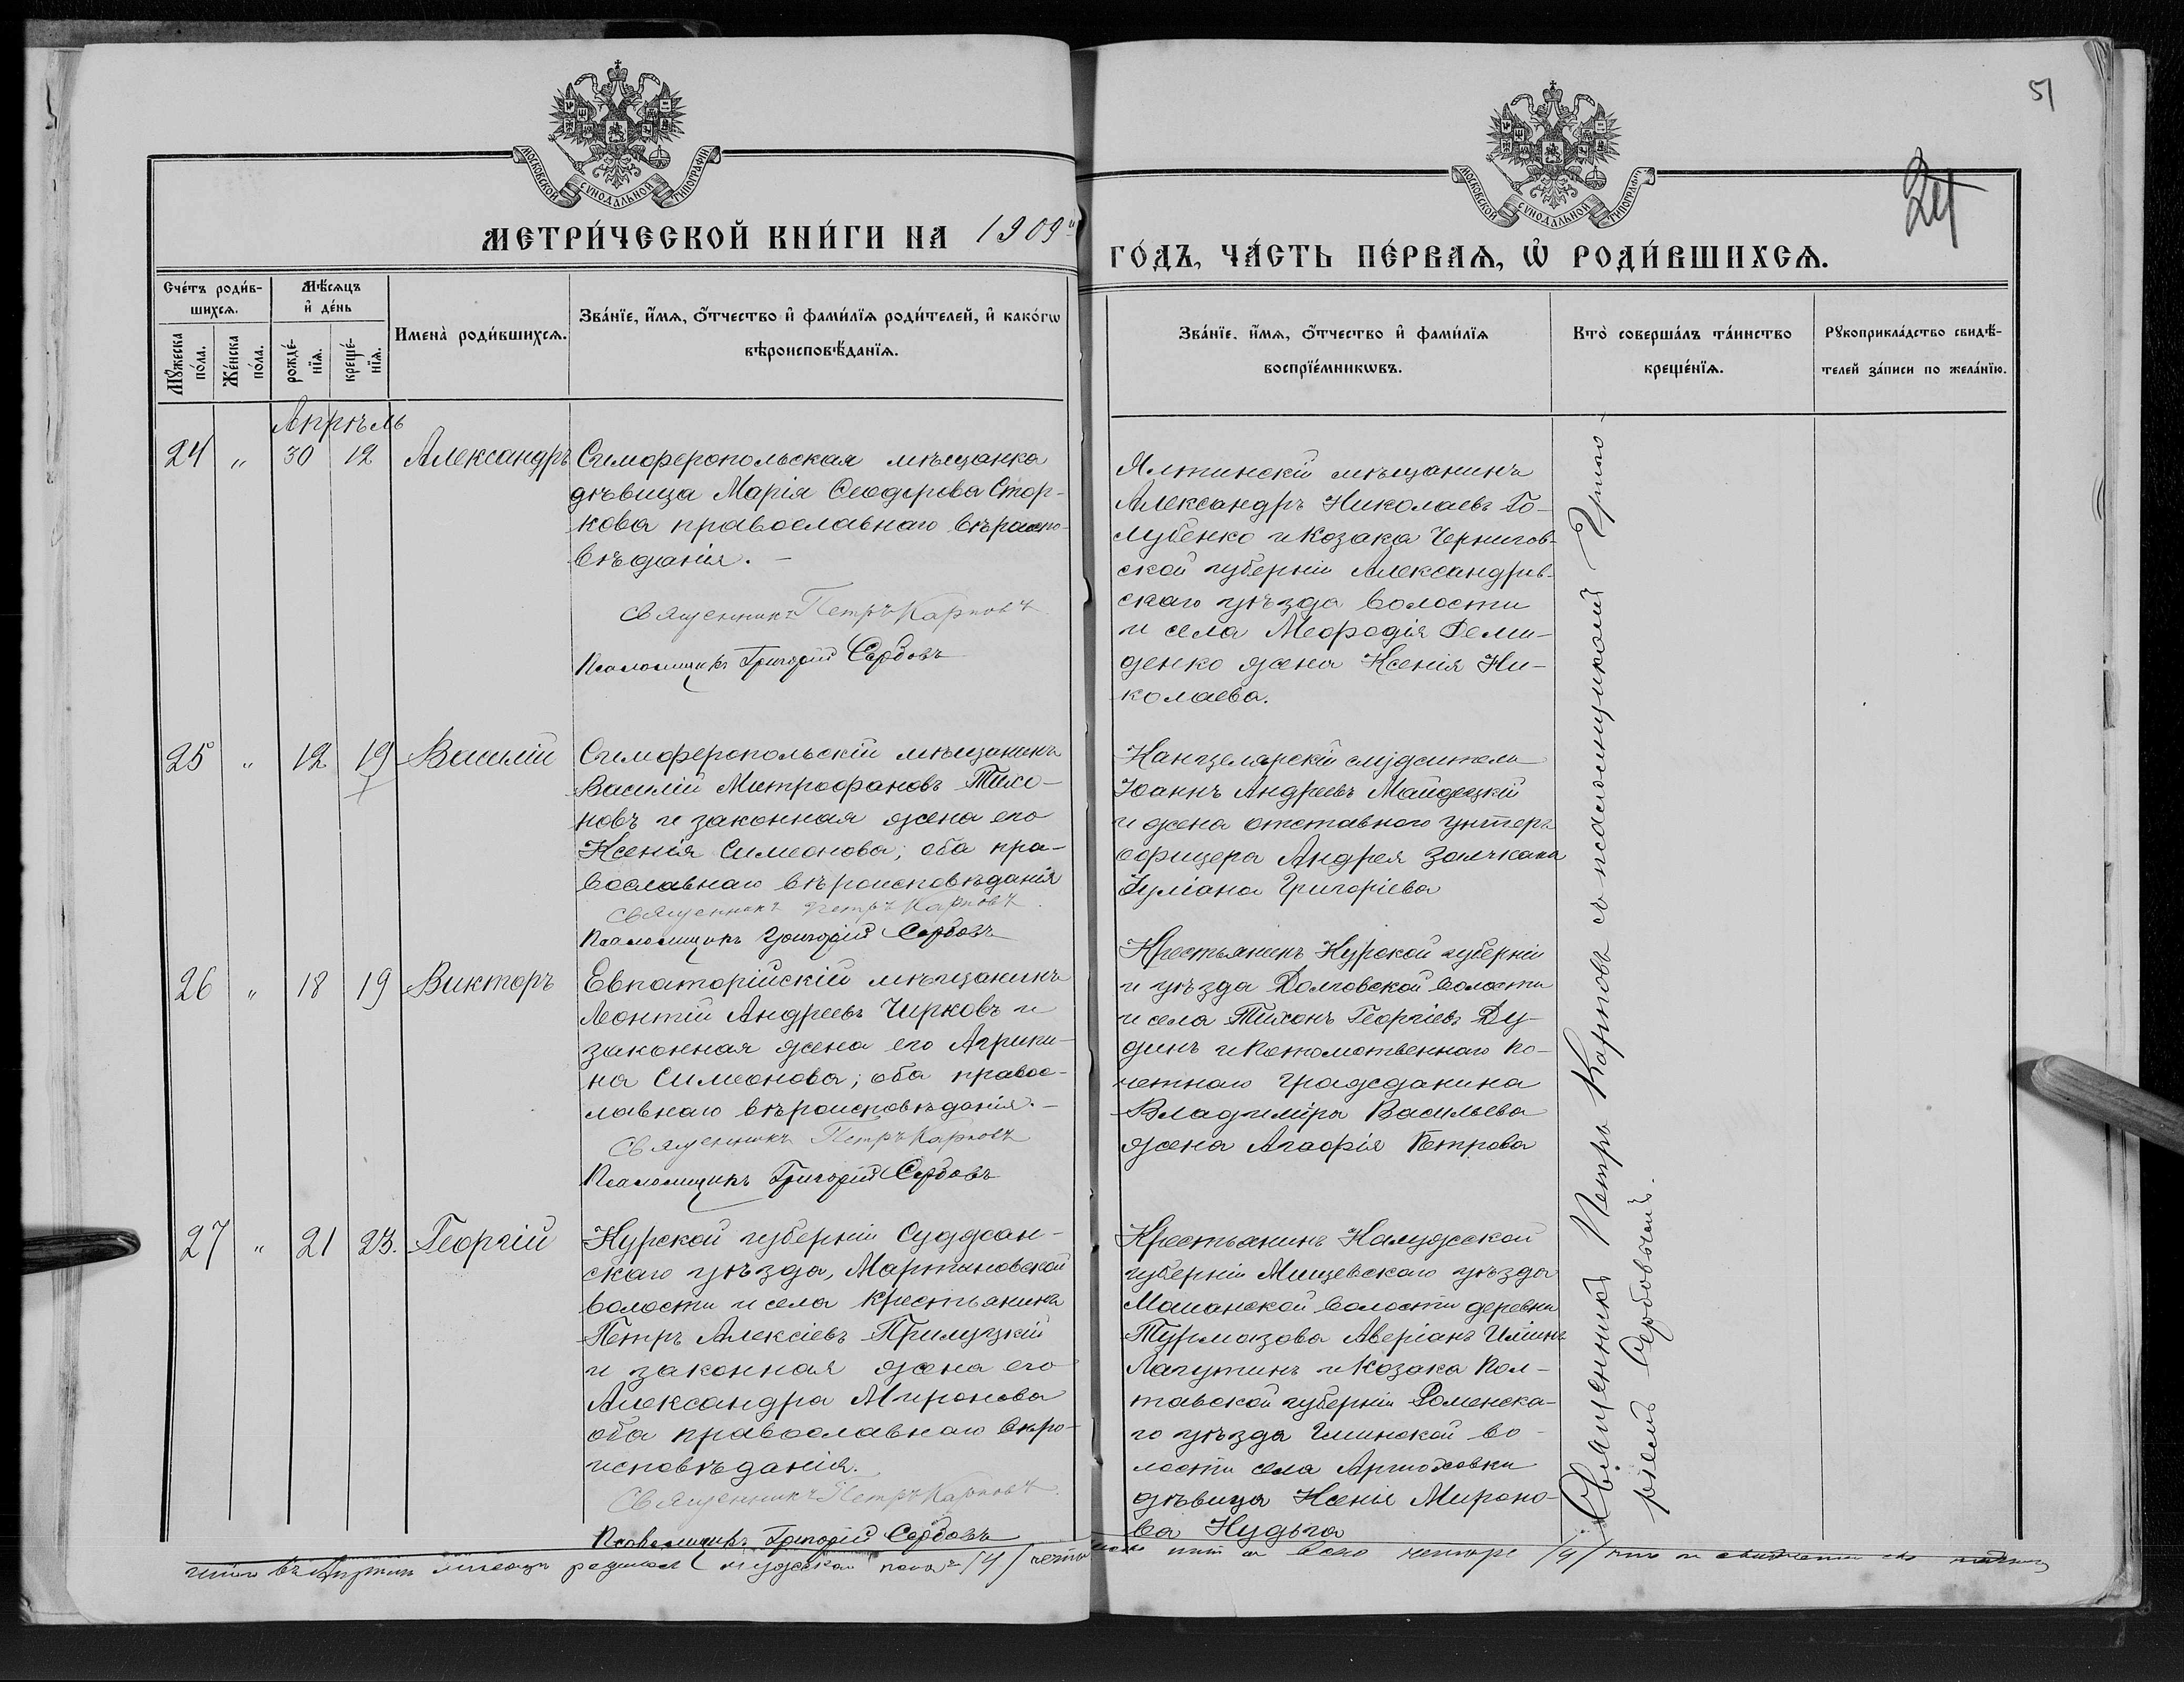 51
24
МОСКОВСКОЙ СѴНОДАЛЬНОЙ ТИПОГРАФІИ
МОСКОВСКОЙ СѴНОДАЛЬНОЙ ТИПОГРАФІИ
МЕТРИ́ЧЕСКОЙ КНИ́ГИ НА 1909й
ГО́ДЪ, ЧА́СТЬ ПЕ́РВАѦ, Ѡ҆ РОДИ́ВШИХСѦ.
Сче́тъ роди́в-
шихсѧ.
Мꙋ́жеска по́ла.
Же́нска по́ла.
Мѣ́сѧцъ
и҆ де́нь
рожде́-
нїѧ.
креще́-
нїѧ.
Имена̀ роди́вшихсѧ.
Зва́нїе, и҆́мѧ, ѻ҆́тчество и҆ фами́лїѧ роди́телей, и҆ како́гѡ
вѣроисповѣ́данїѧ.
Зва́нїе, и҆́мѧ, ѻ҆́тчество и҆ фами́лїѧ
воспрїе́мникѡвъ.
Кто̀ соверша́лъ та́инство
креще́нїѧ.
Рꙋкоприкла́дство свидѣ́-
телей за́писи по жела́нїю.
Апрѣль
24 " 30 12 Александръ
Симферопольская мѣщанка
дѣвица Марія Ѳеодорова Стор-
кова православнаго вѣроиспо-
вѣданія. –
Священникъ Петръ Карповъ
Псаломщикъ Григорій Сербовъ
Ялтинскій мѣщанинъ
Александръ Николаевъ Го-
лубенко и козака Чернигов-
ской губерніи Александрів-
скаго уѣзда волости
и села Меѳодія Деми-
денко жена Ксенія Ни-
колаева.
25 " 12 19 Василій
Симферопольскій мѣщанинъ
Василій Митрофановъ Тихо-
новъ и законная жена его
Ксенія Симеонова; оба пра-
вославнаго вѣроисповѣданія
Священникъ Петръ Карповъ.
Псаломщикъ Григорій Сербовъ
Канцелярскій служитель
Іоаннъ Андреевъ Майдецкій
и жена отставного унтеръ
офицера Андрея
Іуліана Григоріева
26 " 18 19 Викторъ
Евпаторійскій мѣщанинъ
Леонтій Андреевъ Чирковъ и
законная жена его Агрипи-
на Симеонова; оба правос-
лавнаго вѣроисповѣданія. –
Священникъ Петръ Карповъ
Псаломщикъ Григорій Сербовъ
Крестьянинъ Курской губерніи
и уѣзда Долговской волости
и села Тихонъ Георгіевъ Ду-
динъ и потомственнаго по-
четнаго гражданина
Владиміра Васильева
жена Агаѳія Петрова
27 " 21 23. Георгій
Курской губерніи Суджан-
скаго уѣзда, Мартиновской
волости и села крестьянинъ
Петръ Алексіевъ Прилуцкій
и законная жена его
Александра Миронова
оба православнаго вѣро-
исповѣданія.
Священникъ Петръ Карповъ.
Псаломщикъ Григорій Сербовъ
Крестьянинъ Калужской
губерніи Мищевскаго уѣзда
волости деревни
Турмазова Аверіанъ Иліинъ
Лапутинъ и козака Пол-
тавской губерніи Роменска-
го уѣзда во-
лости села
дѣвица Ксенія Мироно-
ва Кудьга
Священникъ Петръ Карповъ съ псаломщикомъ Григо-
ріемъ Сербовымъ.
мужеска пола /4/
всего четыре /4/